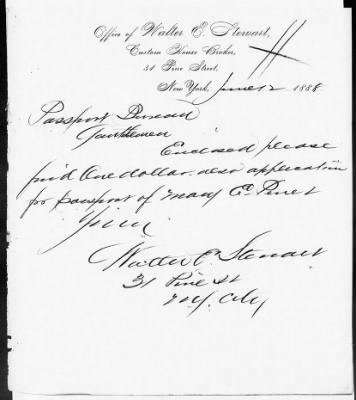 Office of Walter E. Stewart,
Custom House Broker,
31 Pine Street,
New York, June 12 1888
Passport Bureau
Gentlemen
Enclosed please
find One dollar also application
for passport of Mary E.
Walter E. Stewart
31 Pine St
N.Y. City